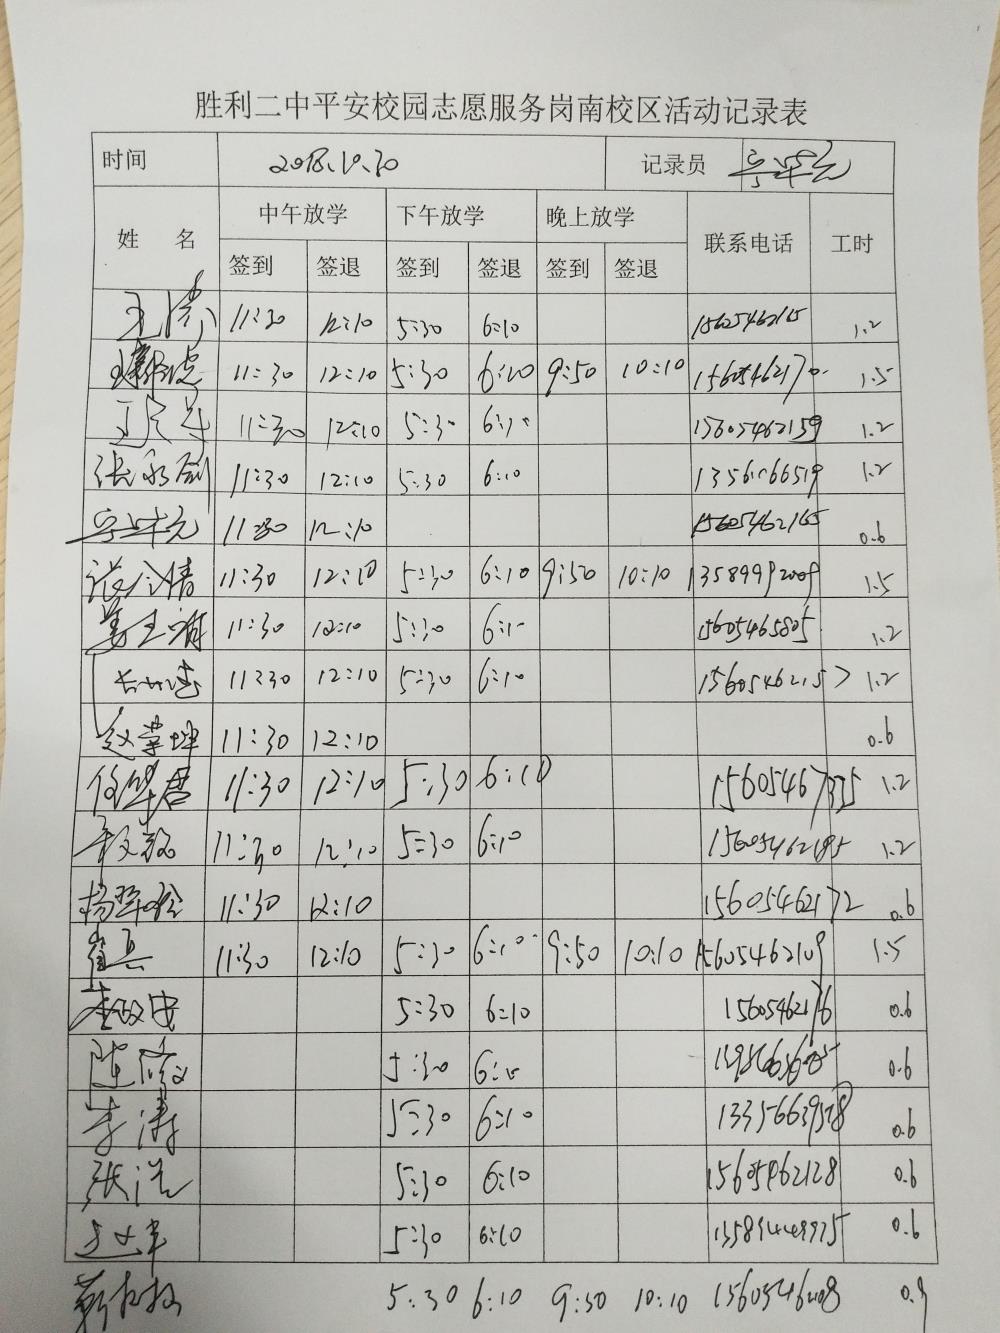 胜利二中平安校园志愿服务岗南校区活动记录表
时间 2018.10.30 记录员
姓 名 中午放学 下午放学 晚上放学 联系电话 工时
签到 签退 签到 签退 签到 签退
王涛 11:30 12:10 5:30 6:10 1.2
11:30 12:10 5:30 6:10 9:50 10:10 15605462170 1.5
11:30 12:10 5:30 6:10 15605462159 1.2
张永剑 11:30 12:10 5:30 6:10 1.2
11:30 12:10 15605462165 0.6
11:30 12:10 5:30 6:10 9:50 10:10 13589992009 1.5
11:30 12:10 5:30 6:10 15605465805 1.2
11:30 12:10 5:30 6:10 15605462157 1.2
赵荣坤 11:30 12:10 0.6
任华君 11:30 12:10 5:30 6:10 15605467335 1.2
11:30 12:10 5:30 6:10 15605462195 1.2
杨翠玲 11:30 12:10 15605462172 0.6
崔兵 11:30 12:10 5:30 6:10 9:50 10:10 15605462109 1.5
李政忠 5:30 6:10 15605462176 0.6
陈 5:30 6:10 0.6
李涛 5:30 6:10 13356639528 0.6
张浩 5:30 6:10 15605462128 0.6
5:30 6:10 0.6
5:30 6:10 9:50 10:10 0.9